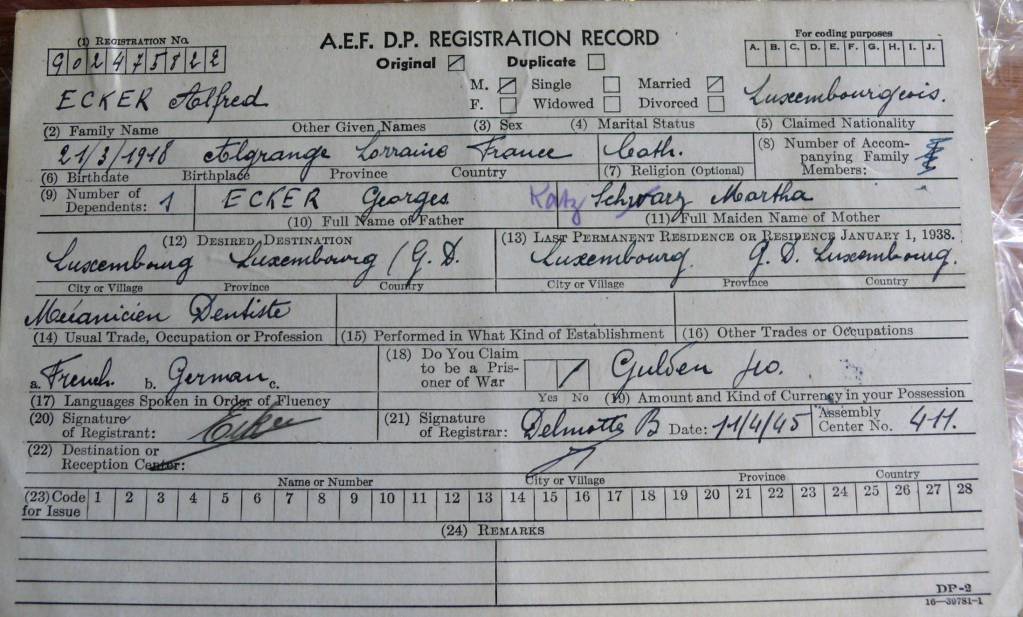 (1) REGISTRATION NO.
G02475822
A.E.F. D.P. REGISTRATION RECORD
Original Duplicate
For coding purposes
A. B. C. D. E. F. G. H. I. J.
M. Single Married
F. Widowed Divorced
ECKER Alfred Luxembourgeois.
(2) Family Name Other Given Names (3) Sex (4) Marital Status (5) Claimed Nationality
21/3/1918 Algrange Lorraine France Cath.
(6) Birthdate Birthplace Province Country (7) Religion (Optional)
(8) Number of Accompanying Family Members:
(9) Number of Dependents: 1
ECKER Georges Katz Schwarz Martha
(10) Full Name of Father (11) Full Maiden Name of Mother
(12) DESIRED DESTINATION (13) LAST PERMANENT RESIDENCE OR RESIDENCE JANUARY 1, 1938.
Luxembourg Luxembourg / G. D. Luxembourg. G. D. Luxembourg.
City or Village Province Country City or Village Province Country
Mécanicien Dentiste
(14) Usual Trade, Occupation or Profession (15) Performed in What Kind of Establishment (16) Other Trades or Occupations
a. French. b. German c.
(17) Languages Spoken in Order of Fluency
(18) Do You Claim to be a Prisoner of War
Yes No
Gulden
(19) Amount and Kind of Currency in your Possession
(20) Signature of Registrant: Ecker
(21) Signature of Registrar: Delmotte B Date: 11/4/45 Assembly Center No. 411.
(22) Destination or Reception Center:
Name or Number City or Village Province Country
(23) Code for Issue 1 2 3 4 5 6 7 8 9 10 11 12 13 14 15 16 17 18 19 20 21 22 23 24 25 26 27 28
(24) REMARKS
DP-2
16—39781-1